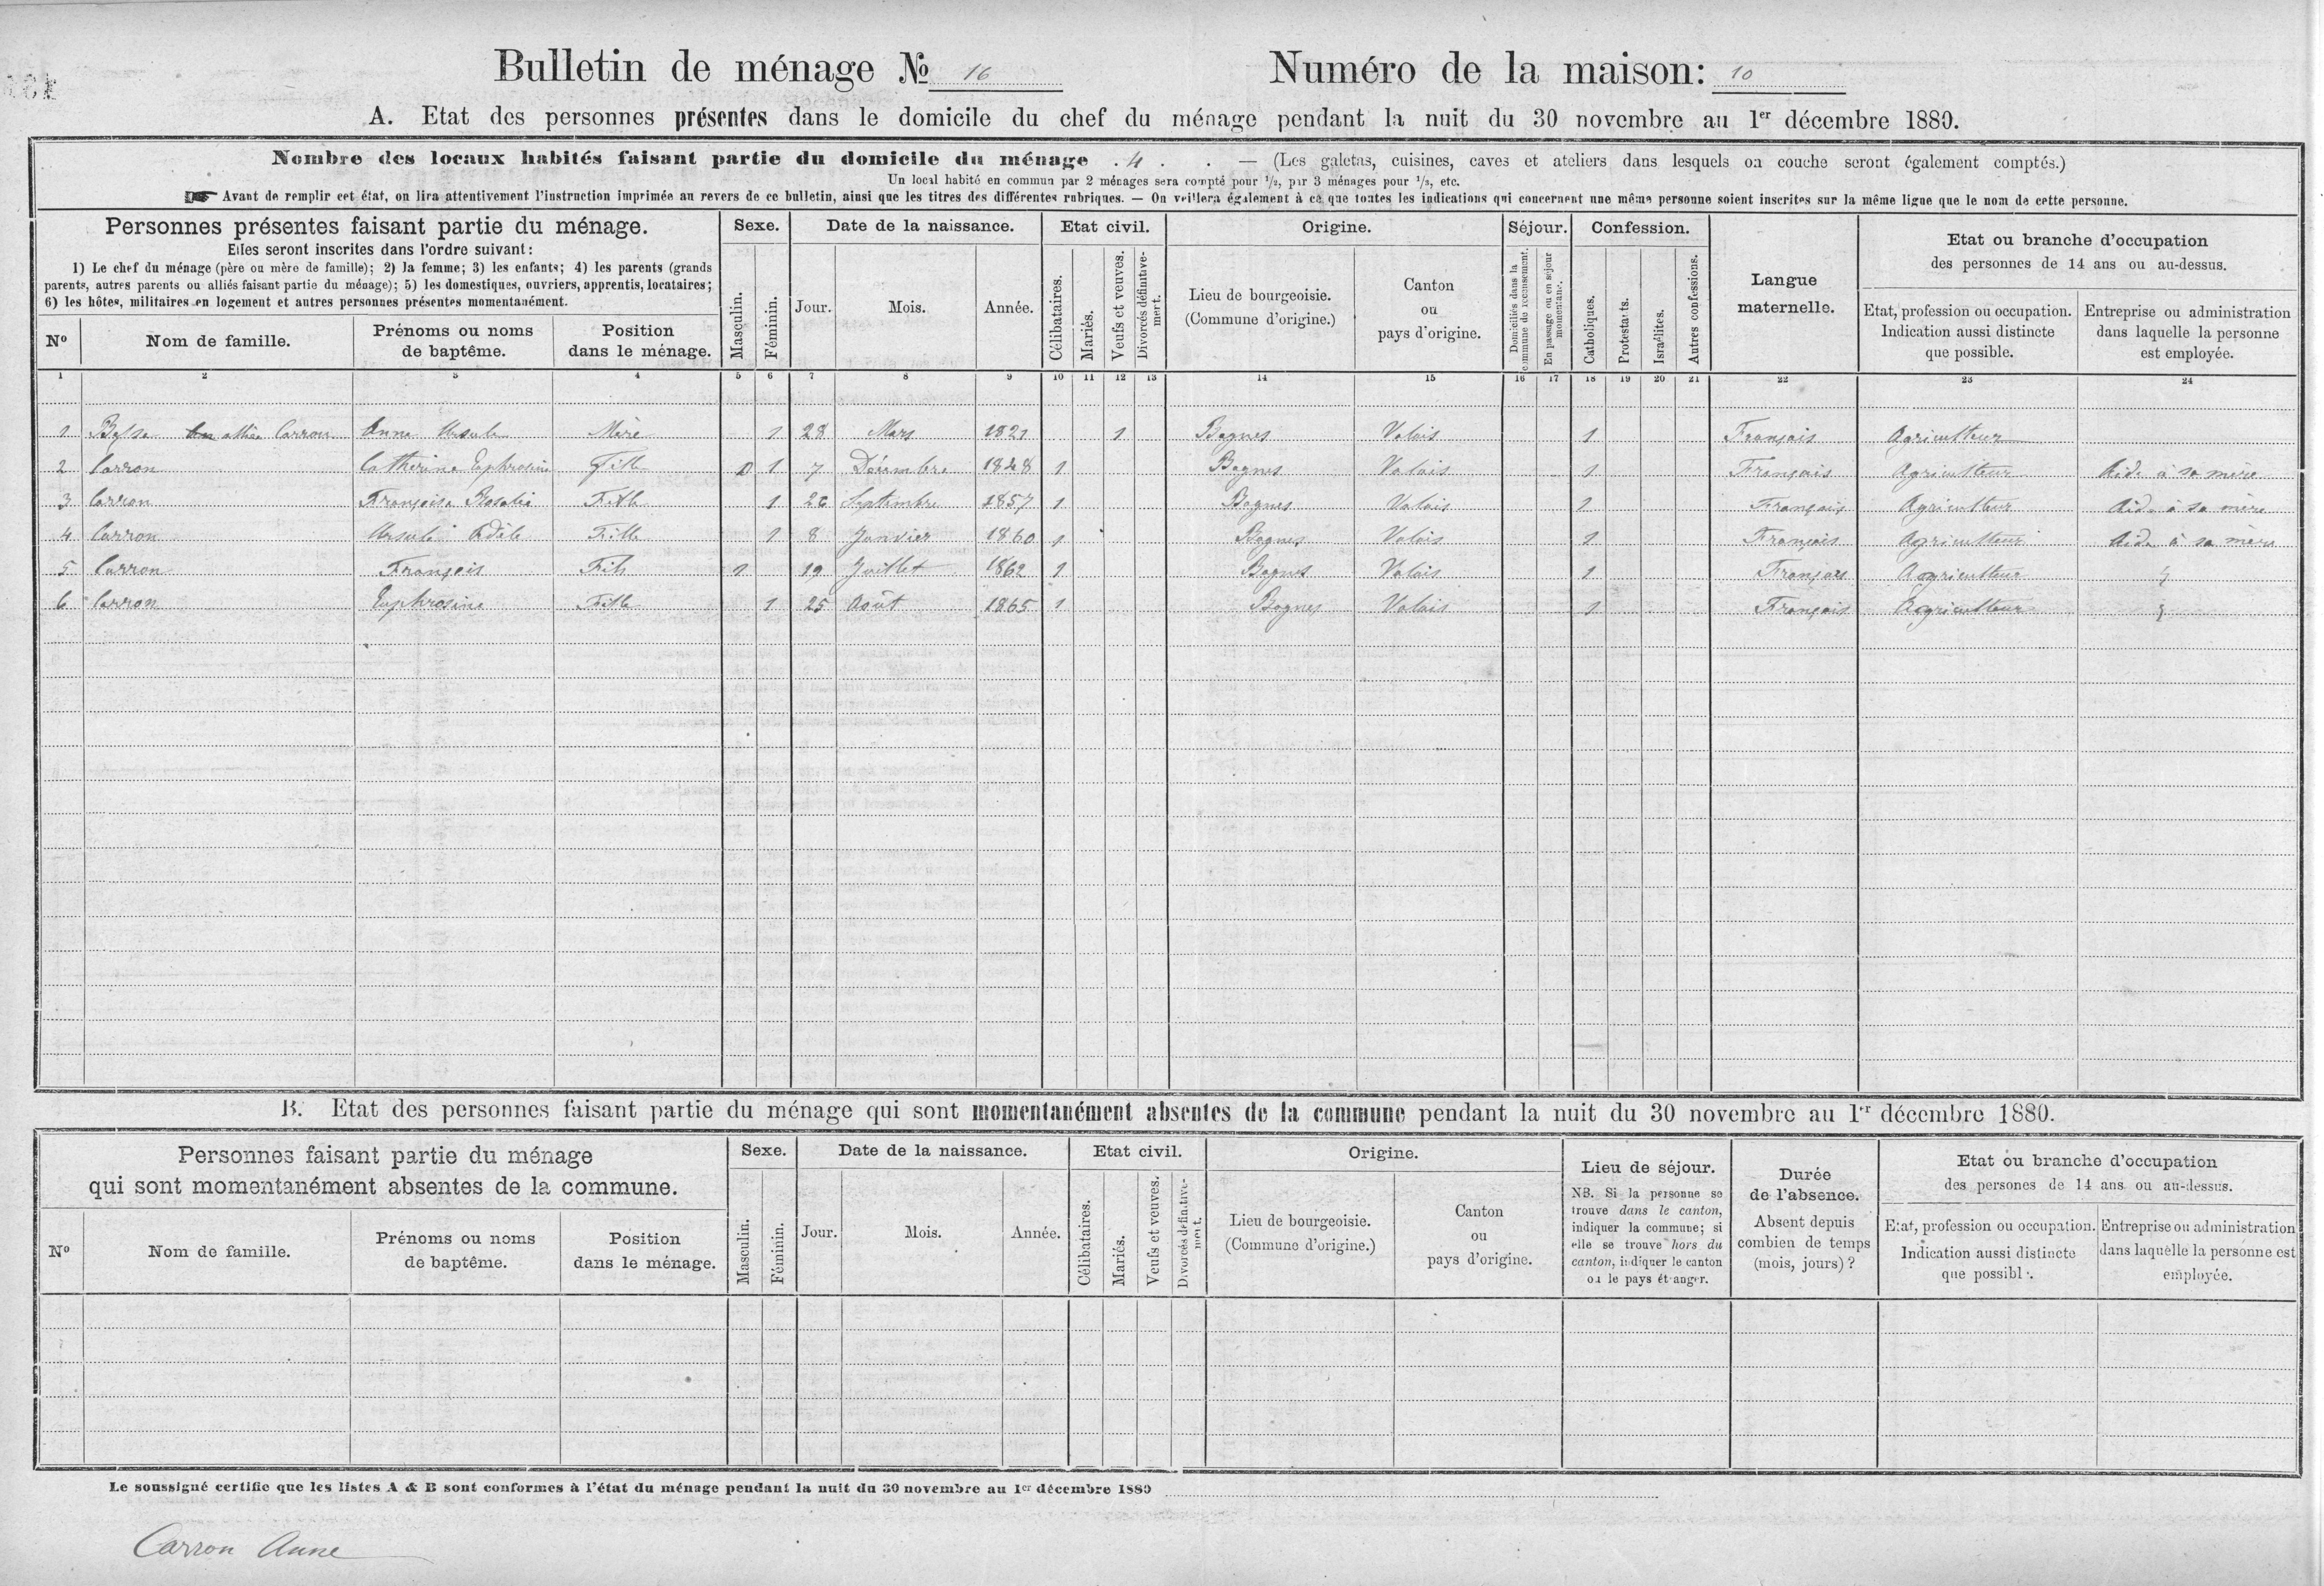 Bulletin de ménage № 16 Numéro de la maison: 10
A. Etat des personnes présentes dans le domicile du chef du ménage pendant la nuit du 30 novembre au 1er décembre 1880.
Nombre des locaux habités faisant partie du domicile du ménage . 4 . . — (Les galetas, cuisines, caves et ateliers dans lesquels on couche seront également comptés.)
Un local habité en commun par 2 ménages sera compté pour 1/2, par 3 ménages pour 1/3, etc.
Avant de remplir cet état, on lira attentivement l'instruction imprimée au revers de ce bulletin, ainsi que les titres des différentes rubriques. — On veillera également à ce que toutes les indications qui concernent une même personne soient inscrites sur la même ligne que le nom de cette personne.
Personnes présentes faisant partie du ménage.
Elles seront inscrites dans l'ordre suivant:
1) Le chef du ménage (père ou mère de famille); 2) la femme; 3) les enfants; 4) les parents (grands
parents, autres parents ou alliés faisant partie du ménage); 5) les domestiques, ouvriers, apprentis, locataires;
6) les hôtes, militaires en logement et autres personnes présentes momentanément.
Nº
Nom de famille.
Prénoms ou noms
de baptême.
Position
dans le ménage.
Sexe.
Masculin.
Féminin.
Date de la naissance.
Jour.
Mois.
Année.
Etat civil.
Célibataires.
Mariés.
Veufs et veuves.
Divorcés définitive-
ment.
Origine.
Lieu de bourgeoisie.
(Commune d'origine.)
Canton
ou
pays d'origine.
Séjour.
Domiciliés dans la
commune de recensement.
En passage ou en séjour
momentané.
Confession.
Catholiques.
Protestants.
Israélites.
Autres confessions.
Langue
maternelle.
Etat ou branche d'occupation
des personnes de 14 ans ou au-dessus.
Etat, profession ou occupation.
Indication aussi distincte
que possible.
Entreprise ou administration
dans laquelle la personne
est employée.
1 2 3 4 5 6 7 8 9 10 11 12 13 14 15 16 17 18 19 20 21 22 23 24
1 Besse alliée Carron Anne Ursule Mère 1 28 Mars 1821 1 Bagnes Valais 1 Français Agriculteur
2 Carron Catherine Euphrosine Fille 1 7 Décembre 1848 1 Bagnes Valais 1 Français Agriculteur Aide à sa mère
3 Carron Françoise Rosalie Fille 1 26 Septembre 1857 1 Bagnes Valais 1 Français Agriculteur Aide à sa mère
4 Carron Ursule Adèle Fille 1 8 Janvier 1860 1 Bagnes Valais 1 Français Agriculteur Aide à sa mère
5 Carron François Fils 1 19 Juillet 1862 1 Bagnes Valais 1 Français Agriculteur
6 Carron Euphrosine Fille 1 25 Août 1865 1 Bagnes Valais 1 Français Agriculteur
B. Etat des personnes faisant partie du ménage qui sont momentanément absentes de la commune pendant la nuit du 30 novembre au 1er décembre 1880.
Personnes faisant partie du ménage
qui sont momentanément absentes de la commune.
Nº
Nom de famille.
Prénoms ou noms
de baptême.
Position
dans le ménage.
Sexe.
Masculin.
Féminin.
Date de la naissance.
Jour.
Mois.
Année.
Etat civil.
Célibataires.
Mariés.
Veufs et veuves.
Divorcés définitive-
ment.
Origine.
Lieu de bourgeoisie.
(Commune d'origine.)
Canton
ou
pays d'origine.
Lieu de séjour.
NB. Si la personne se
trouve dans le canton,
indiquer la commune; si
elle se trouve hors du
canton, indiquer le canton
ou le pays étranger.
Durée
de l'absence.
Absent depuis
combien de temps
(mois, jours)?
Etat ou branche d'occupation
des persones de 14 ans ou au-dessus.
Etat, profession ou occupation.
Indication aussi distincte
que possible.
Entreprise ou administration
dans laquelle la personne est
employée.
Le soussigné certifie que les listes A & B sont conformes à l'état du ménage pendant la nuit du 30 novembre au 1er décembre 1880
Carron Anne